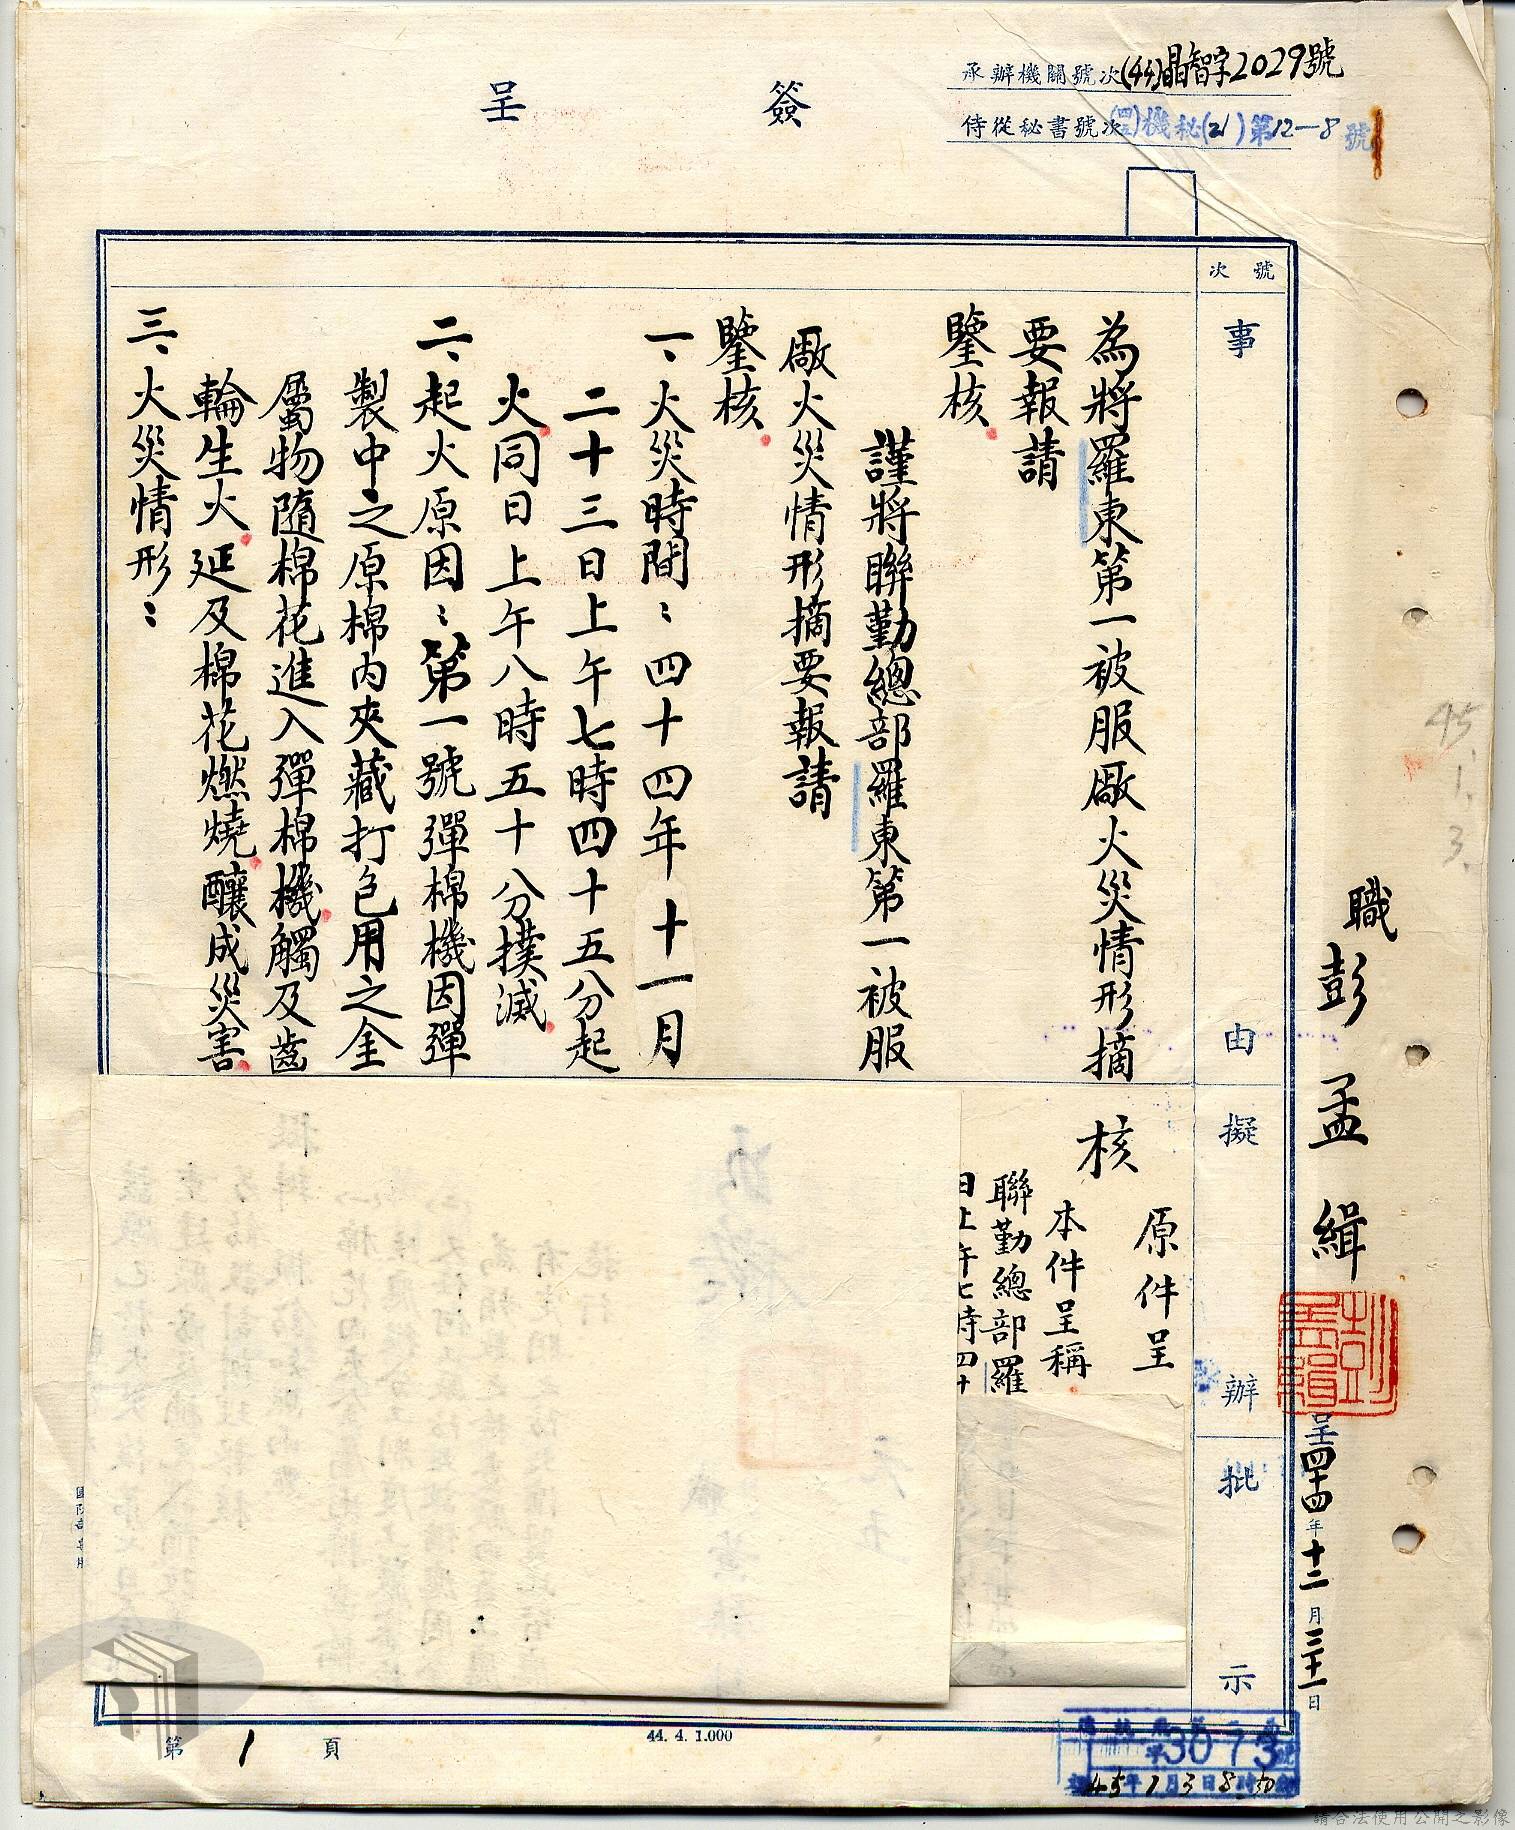 簽呈
承辦機關號次(44)晶智字2029號
侍從秘書號次(四五)機秘(21)第12-8號
號次
事由
擬辦
批示
為將羅東第一被服廠火災情形摘
要報請
鑒核
謹將聯勤總部羅東第一被服
廠火災情形摘要報請
鑒核
一、火災時間：四十四年十一月
二十三日上午七時四十五分起
火同日上午八時五十八分撲滅
二、起火原因：第一號彈棉機因彈
製中之原棉內夾藏打包用之金
屬物隨棉花進入彈棉機觸及齒
輪生火延及棉花燃燒釀成災害
三、火災情形：
核
原件呈
本件呈稱
聯勤總部羅
日上午七時四十
職彭孟緝
彭孟緝
呈四十四年十二月三十一日
45.1.3.
第1頁
44.4.1.000
3073
45年1月3日8時50
請合法使用公開之影像